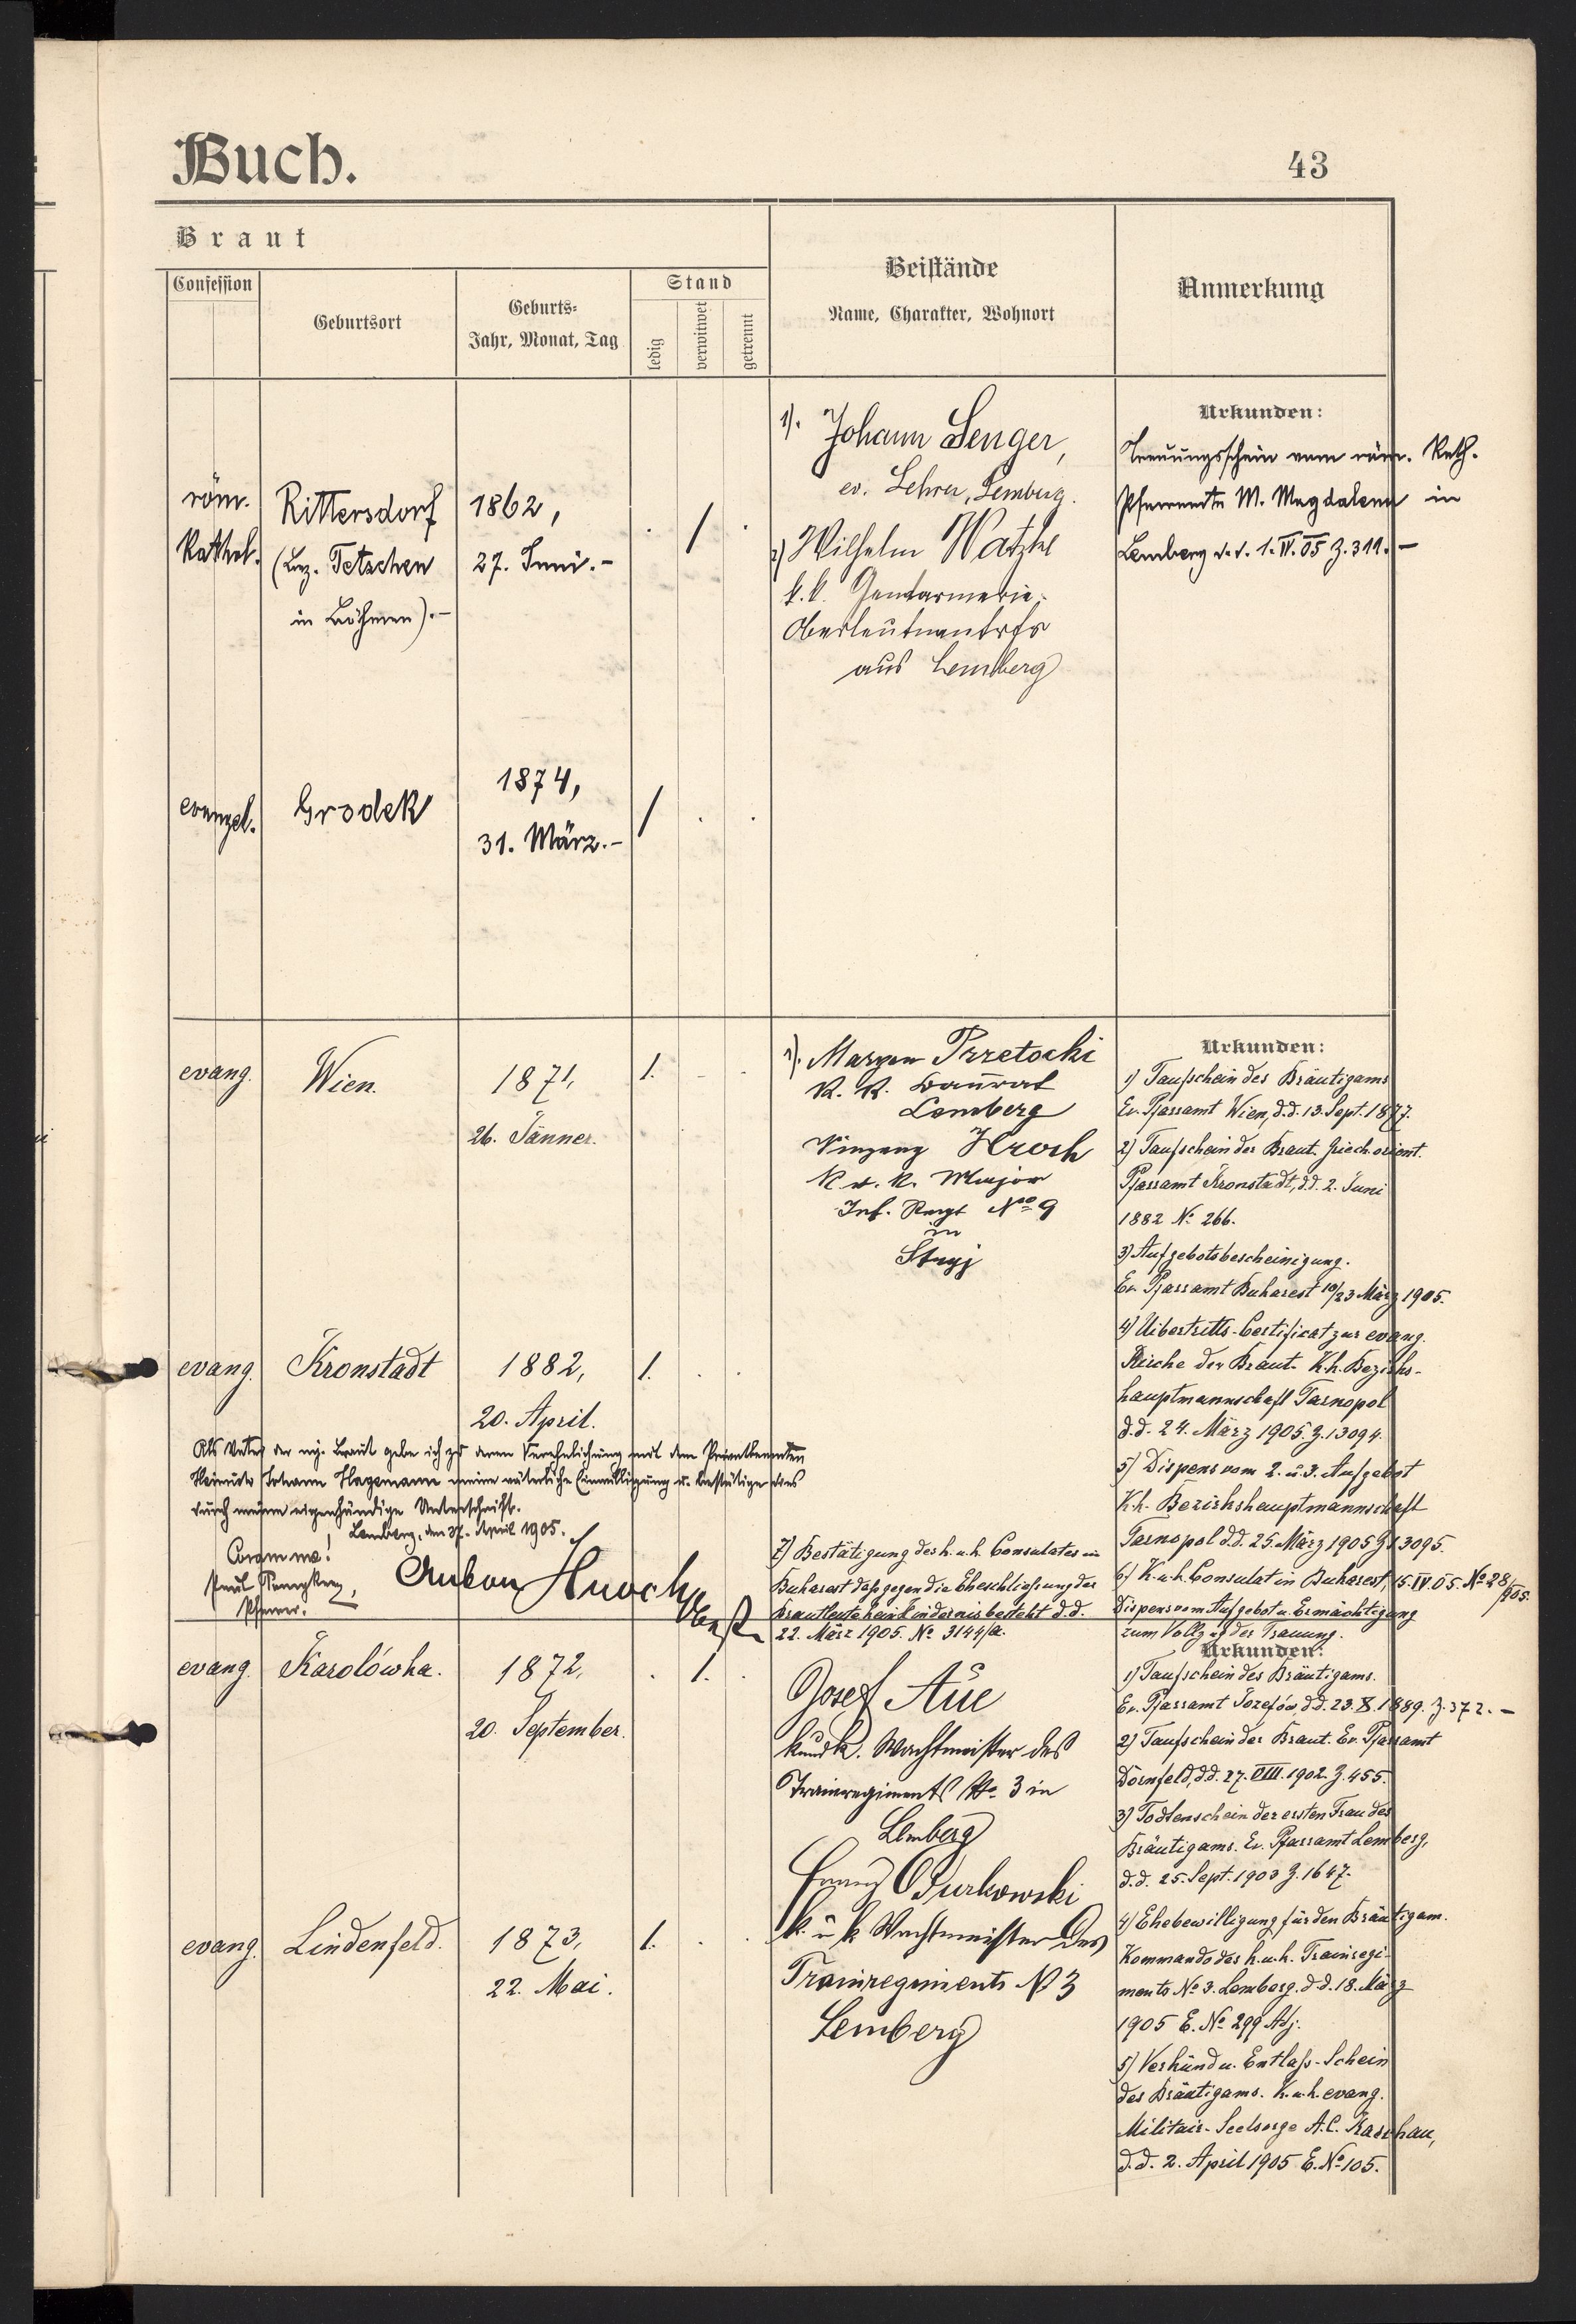 Buch.
43
Braut
Confession
Geburtsort
Geburts-
Jahr, Monat, Tag
Stand
ledig
verwitwet
getrennt
Beistände
Name, Charakter, Wohnort
Anmerkung
röm.
Kathol.
Rittersdorf
(Bez. Tetschen
in Böhmen).-
1862,
27. Juni.-
. / .
1). Johann Senger,
ev. Lehrer, Lemberg.
2) Wilhelm Watzke
k.k. Gendarmerie-
aus Lemberg
Urkunden:
Trauungsschein vom röm. Kath.
Pfarramte M. Magdalena in
Lemberg d. d. 1. IV. 05 Z. 311.-
evangel.
Grodek
1874,
31. März.-
/ . .
evang.
Wien.
1871,
26. Jänner.
1. - .
1). Przetocki
K. K. Baurat
Lemberg
Vinzenz Hroch
K. u. K. Major
Inf. Regt No 9
in
Stryj
Urkunden:
1) Taufschein des Bräutigams
Ev. Pfarramt Wien, d.d. 13. Sept. 1877.
2) Taufschein der Braut. Griech. orient.
Pfarramt Kronstadt, d.d. 2. Juni
1882 No 266.
3) Aufgebotsbescheinigung.
Ev. Pfarramt Bukarest 10/23 März 1905.
4) Uibertritts-Certificat zur evang.
Kirche der Braut. K.k. Bezirks-
hauptmannschaft Tarnopol
d.d. 24. März 1905 Z. 13094.
5) Dispens vom 2. u. 3. Aufgebot
K.k. Bezirkshauptmannschaft
Tarnopol d.d. 25. März 1905 Z 13095.
6) K.u.k. Consulat in Bukarest, 15. IV. 05. No 28/905.
Dispens vom Aufgebot u. Ermächtigung
zum Vollzug der Trauung.
7) Bestätigung des k.u.k. Consulates in
Bukarest daß gegen die Eheschließung der
Brautleute kein Hindernis besteht d.d.
22. März 1905. No 3144/a.
evang.
Kronstadt
1882,
20. April.
1. . .
Als Vater der mj. Braut gebe ich zu deren Verehelichung mit dem Privatbeamten
Johann Hagemann meine väterliche Einwilligung u. bestätige dies
durch meine eigenhändige Unterschrift.
Lemberg, den 27. April 1905.
Coram me!
Pfarrer.
Anton
evang.
Karolówka.
1872,
20. September.
. 1. .
Josef Aue
k und k. Wachtmeister des
Trainregiments No 3 in
Lemberg
Franz Turkowski
k. u k Wachtmeister des
Trainregiments No 3
Lemberg
Urkunden:
1) Taufschein des Bräutigams.
Ev. Pfarramt Józefów, d.d. 23. X. 1889. Z. 372. -
2) Taufschein der Braut. Ev. Pfarramt
Dornfeld, d.d. 27. VIII. 1902. Z. 455.
3) Todtenschein der ersten Frau des
Bräutigams. Ev. Pfarramt Lemberg,
d.d. 25. Sept. 1903 Z. 1647.
4) Ehebewilligung für den Bräutigam.
Kommando des k.u.k. Trainregi-
ments No 3. Lemberg. d.d. 18. März
1905 E. No 299 Adj.
5) Verkünd u. Entlaß-Schein
des Bräutigams. K.u.k. evang.
Militair-Seelsorge A.C. Kaschau,
d.d. 2. April 1905 E. No 105.
evang.
Lindenfeld.
1873,
22. Mai.
1. . .